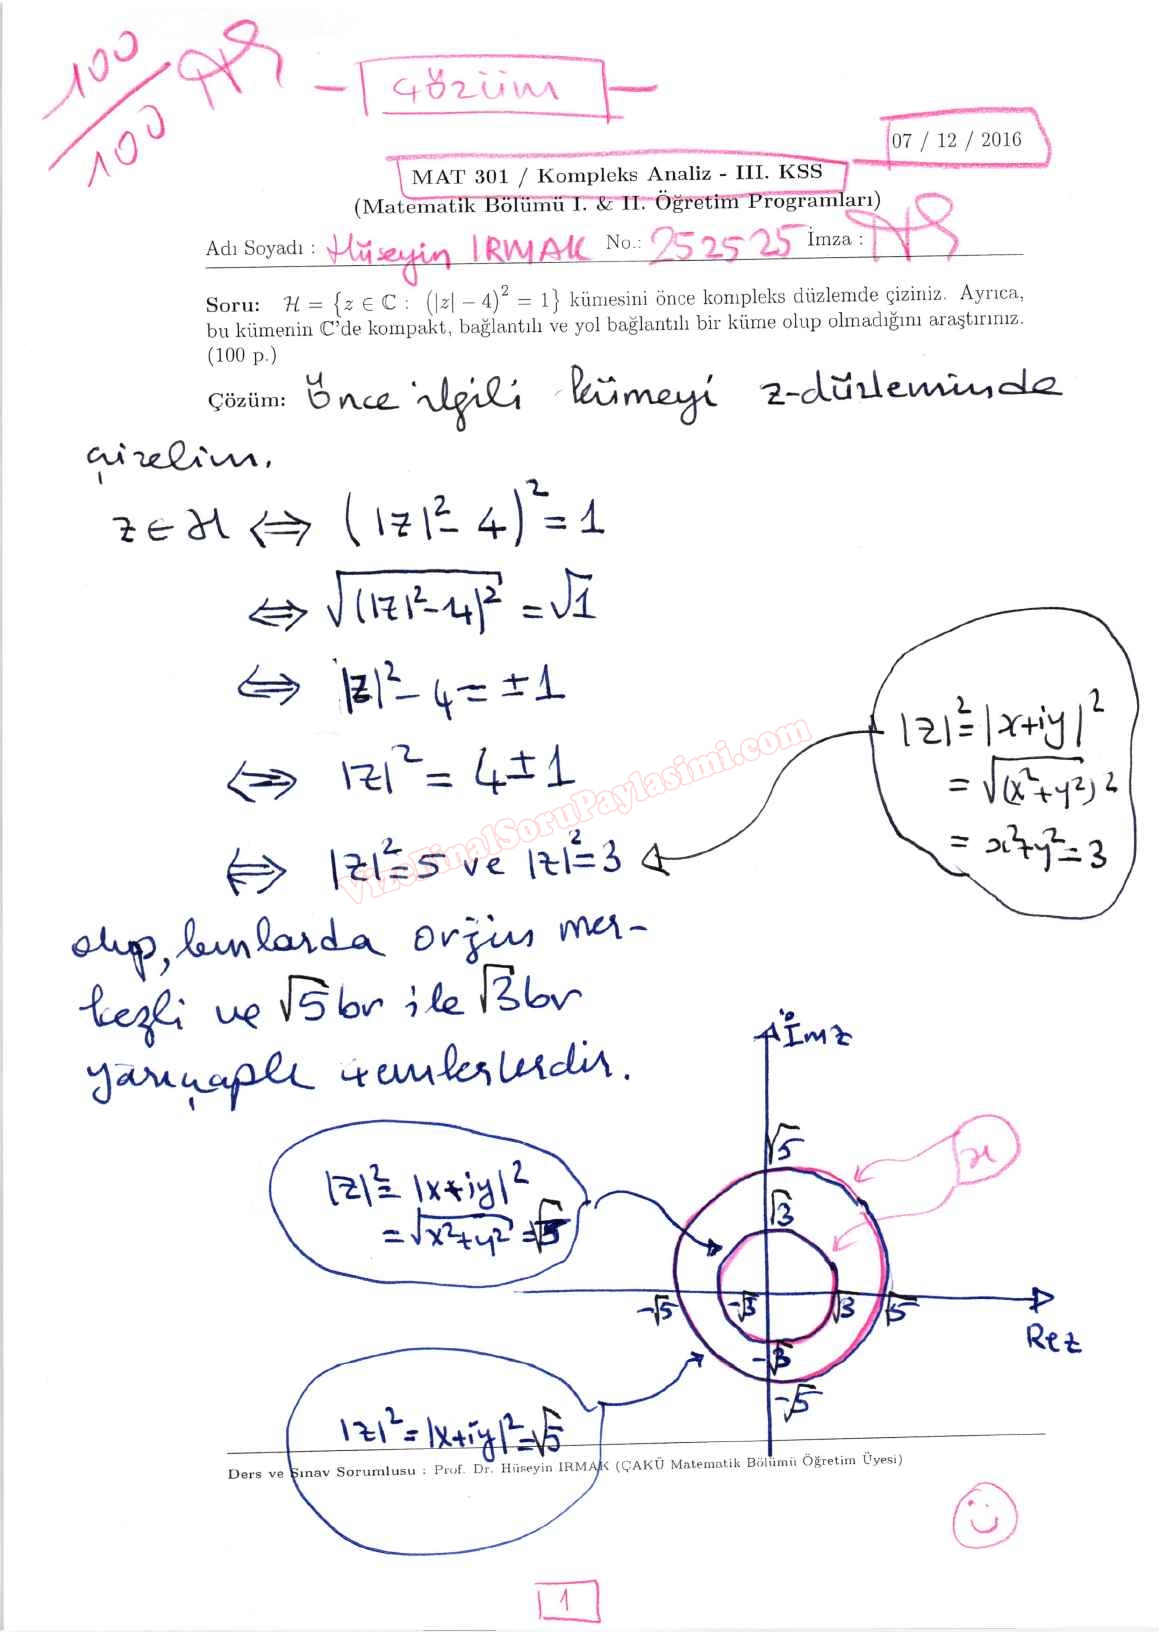 100
100
- ÇÖZÜM -
07 / 12 / 2016
MAT 301 / Kompleks Analiz - III. KSS
(Matematik Bölümü I. & II. Öğretim Programları)
Adı Soyadı : Hüseyin IRMAK No.: 252525 İmza :
Soru: ℋ = {z ∈ ℂ : (|z| − 4)² = 1} kümesini önce kompleks düzlemde çiziniz. Ayrıca,
bu kümenin ℂ'de kompakt, bağlantılı ve yol bağlantılı bir küme olup olmadığını araştırınız.
(100 p.)
Çözüm: Önce ilgili kümeyi z-düzleminde
çizelim.
z ∈ ℋ ⇔ (|z|² − 4)² = 1
⇔ √(|z|² − 4)² = √1
⇔ |z|² − 4 = ±1
⇔ |z|² = 4 ± 1
⇔ |z|² = 5 ve |z|² = 3
|z|² = |x+iy|²
= √(x²+y²)²
= x²+y² = 3
VizeFinalSoruPaylasimi.com
olup, bunlarda orjin mer-
kezli ve √5 br ile √3 br
yarıçaplı çemberlerdir.
İmz
√5
ℋ
√3
|z|² = |x+iy|²
= √x²+y² =
-√5 -√3 √3 √5
Rez
-√3
-√5
|z|² = |x+iy|² = √5
Ders ve Sınav Sorumlusu : Prof. Dr. Hüseyin IRMAK (ÇAKÜ Matematik Bölümü Öğretim Üyesi)
1